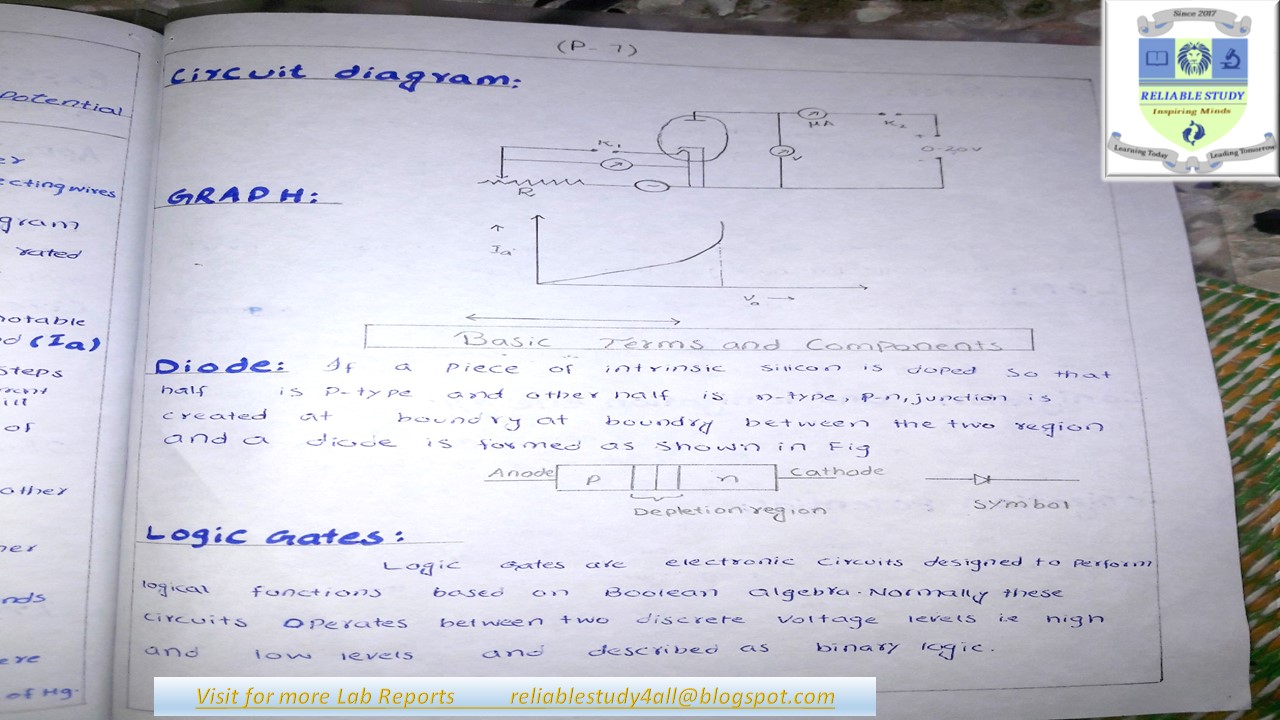 (P-7)
Circuit diagram:
K1
μA
K2
V
+
0-20V
-
R
GRAPH:
Ia
Va
Basic Terms and Components
Diode: If a piece of intrinsic silicon is doped so that
half is P-type and other half is n-type, p-n, junction is
created at boundry at boundry between the two region
and a diode is formed as shown in Fig
Anode P n Cathode
Depletion region
Symbol
Logic Gates:
Logic Gates are electronic circuits designed to perform
logical functions based on Boolean algebra. Normally these
circuits operates between two discrete voltage levels i.e high
and low levels and described as binary logic.
Potential
er
ecting wires
gram
rated
notable
d (Ia)
steps
ment
ill
of
other
her
nds
ere
of Hg.
Since 2017
RELIABLE STUDY
Inspiring Minds
Learning Today Leading Tomorrow
Visit for more Lab Reports reliablestudy4all@blogspot.com